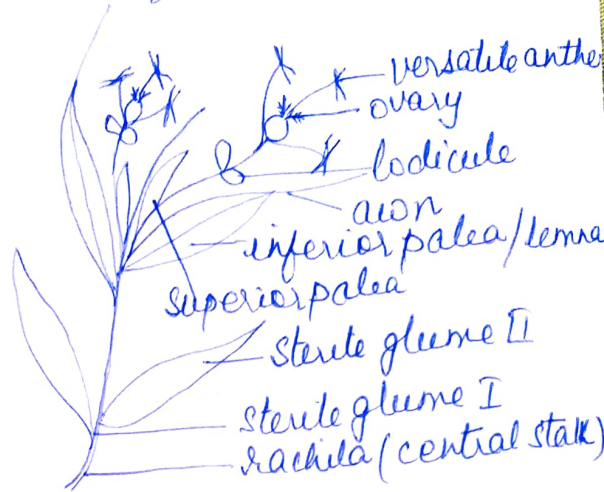 versatile anthe
ovary
lodicule
awn
inferior palea/lemna
superior palea
sterile glume II
sterile glume I
rachila (central stalk)